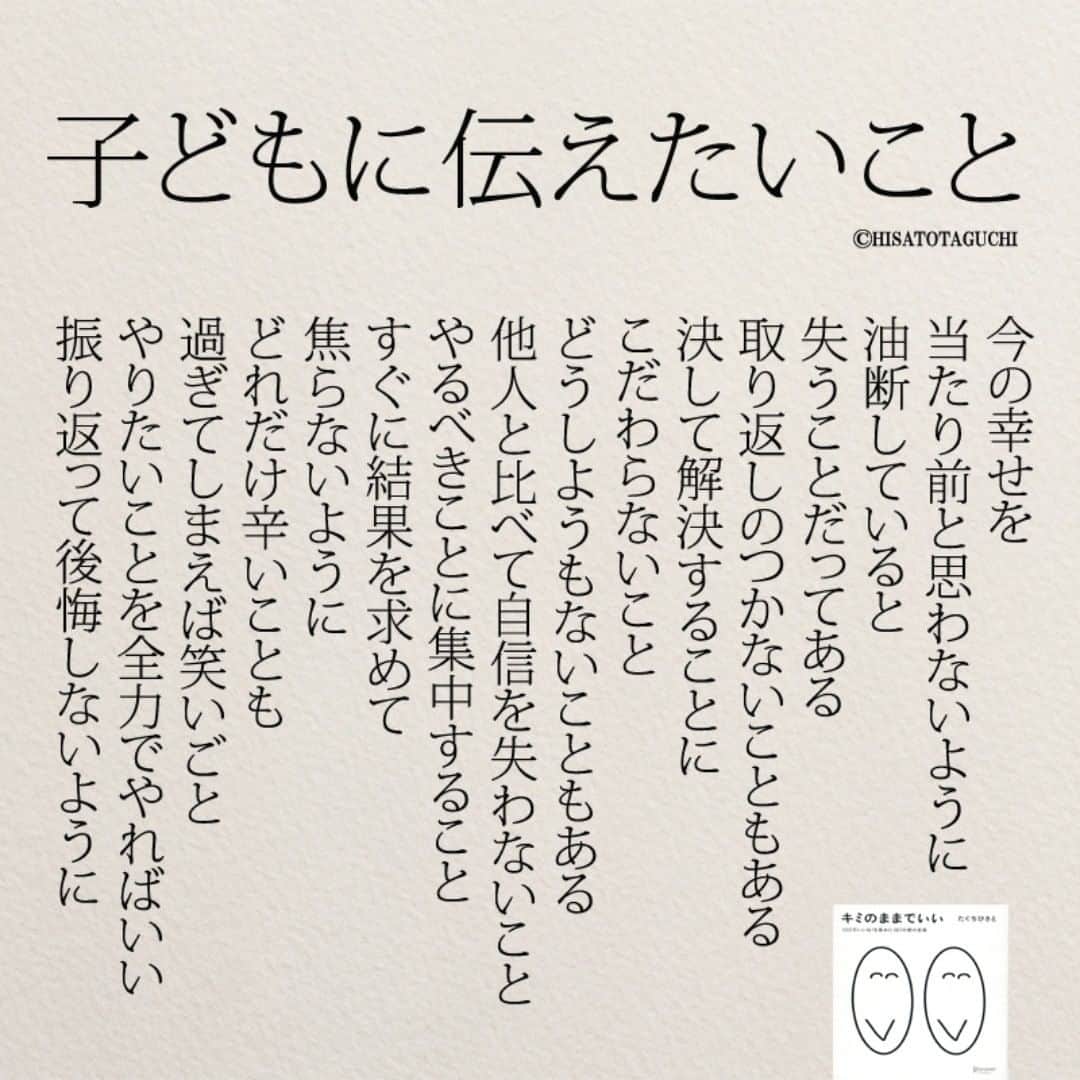 子どもに伝えたいこと
©HISATOTAGUCHI
今の幸せを
当たり前と思わないように
油断していると
失うことだってある
取り返しのつかないこともある
決して解決することに
こだわらないこと
どうしようもないこともある
他人と比べて自信を失わないこと
やるべきことに集中すること
すぐに結果を求めて
焦らないように
どれだけ辛いことも
過ぎてしまえば笑いごと
やりたいことを全力でやればいい
振り返って後悔しないように
キミのままでいい
たぐちひさと